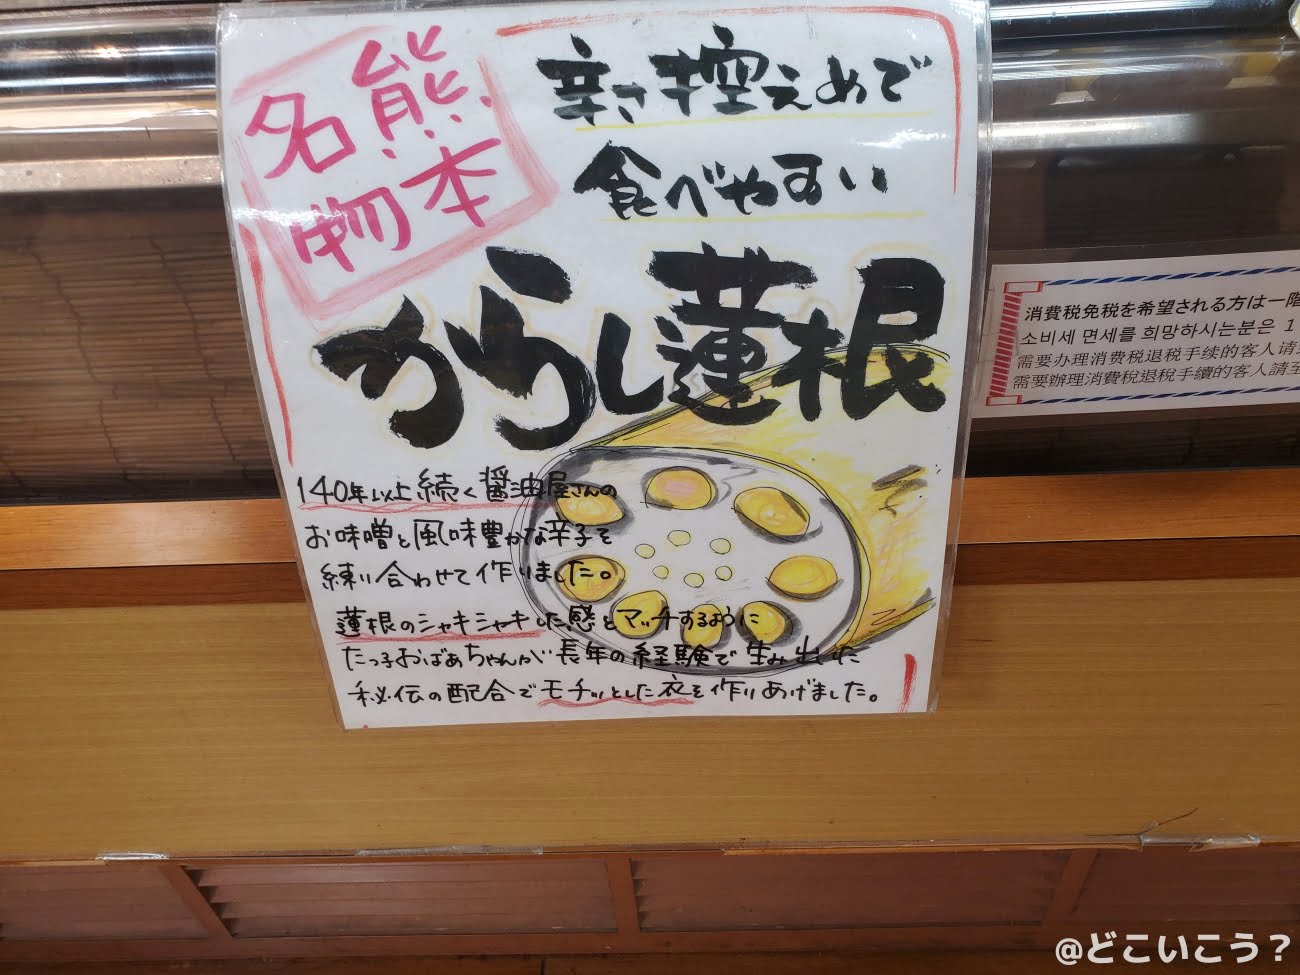 熊本
名物
辛さ控えめで
食べやすい
からし蓮根
140年以上続く醤油屋さんの
お味噌と風味豊かな辛子を
練り合わせて作りました。
蓮根のシャキシャキした感とマッチするように
たっ子おばあちゃんが長年の経験で生み出した
秘伝の配合でモチッとした衣を作りあげました。
消費税免税を希望される方は一階
소비세 면세를 희망하시는분은 1
需要办理消费税退税手续的客人请
需要辦理消費稅退稅手續的客人請至
@どこいこう？